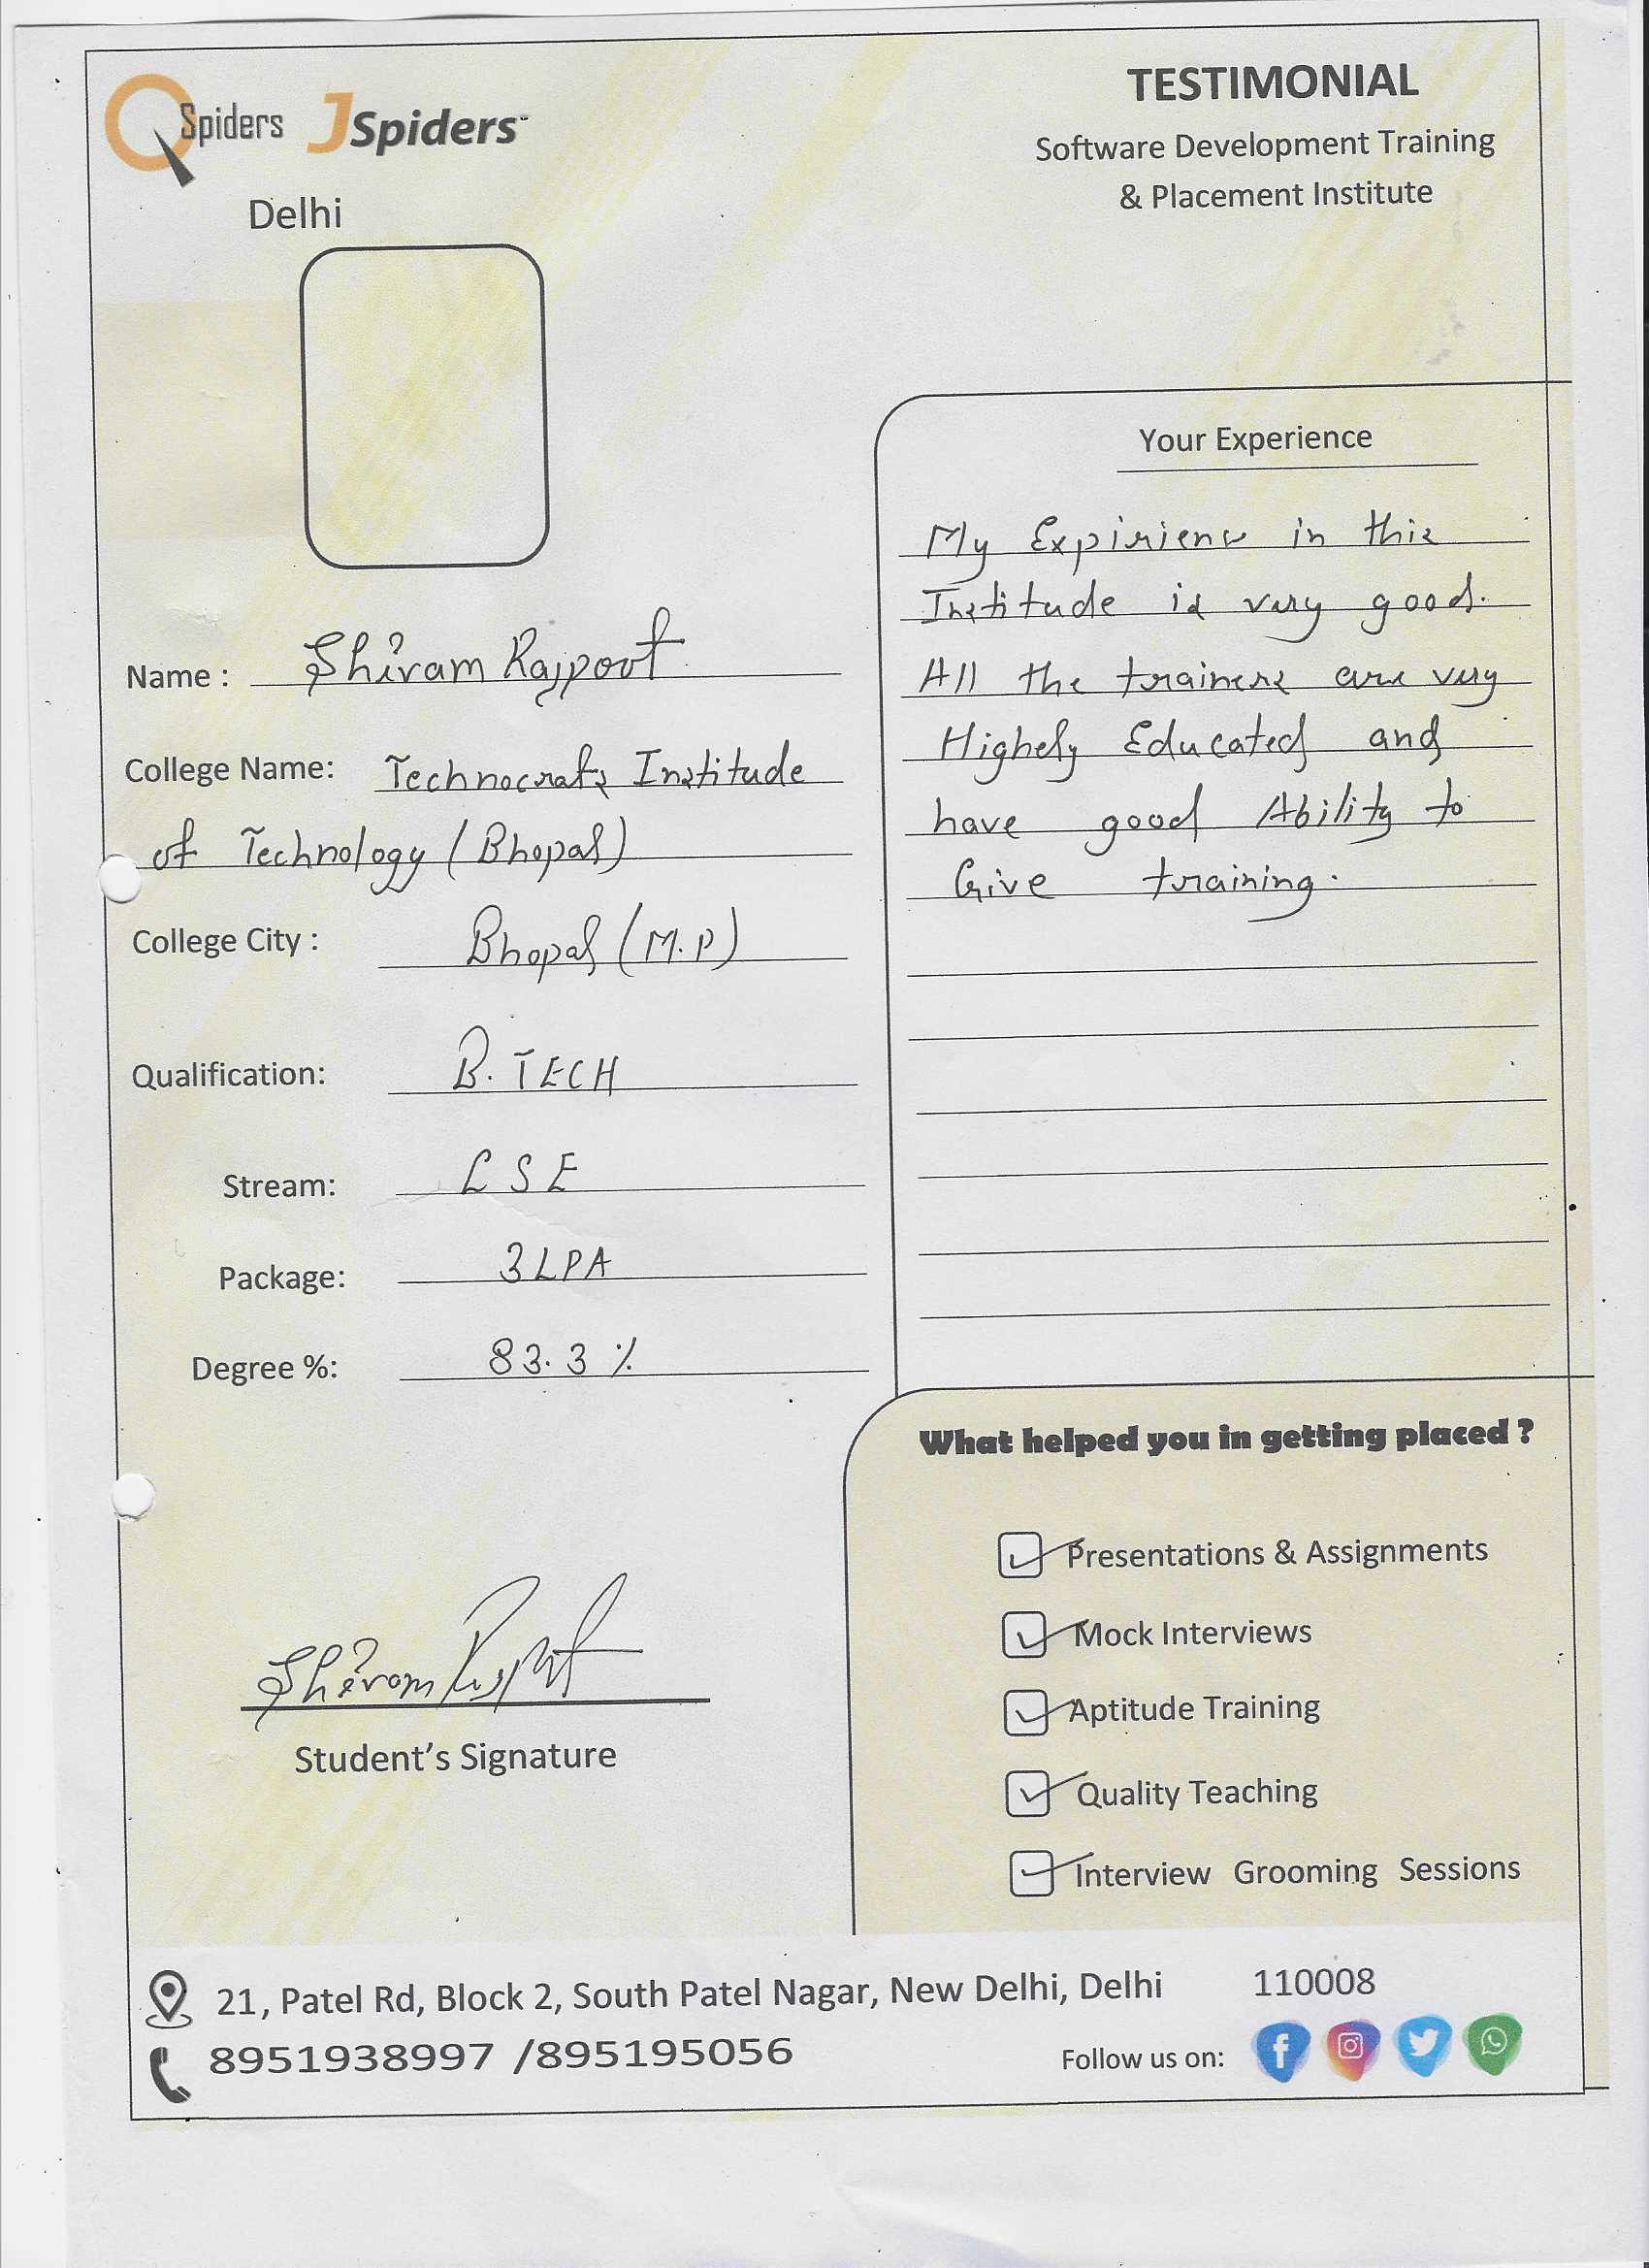 QSpiders JSpiders
Delhi
TESTIMONIAL
Software Development Training
& Placement Institute
Name : Shivam Rajpoot
College Name: Technocrats Institude
of Technology (Bhopal)
College City : Bhopal (M.P)
Qualification: B. TECH
Stream: CSE
Package: 3 LPA
Degree %: 83.3 %
Student's Signature
Your Experience
My Expirienc in this
Institude is very good.
All the trainers are very
Highely Educated and
have good Ability to
Give training.
What helped you in getting placed ?
Presentations & Assignments
Mock Interviews
Aptitude Training
Quality Teaching
Interview Grooming Sessions
21, Patel Rd, Block 2, South Patel Nagar, New Delhi, Delhi 110008
8951938997 /895195056
Follow us on: